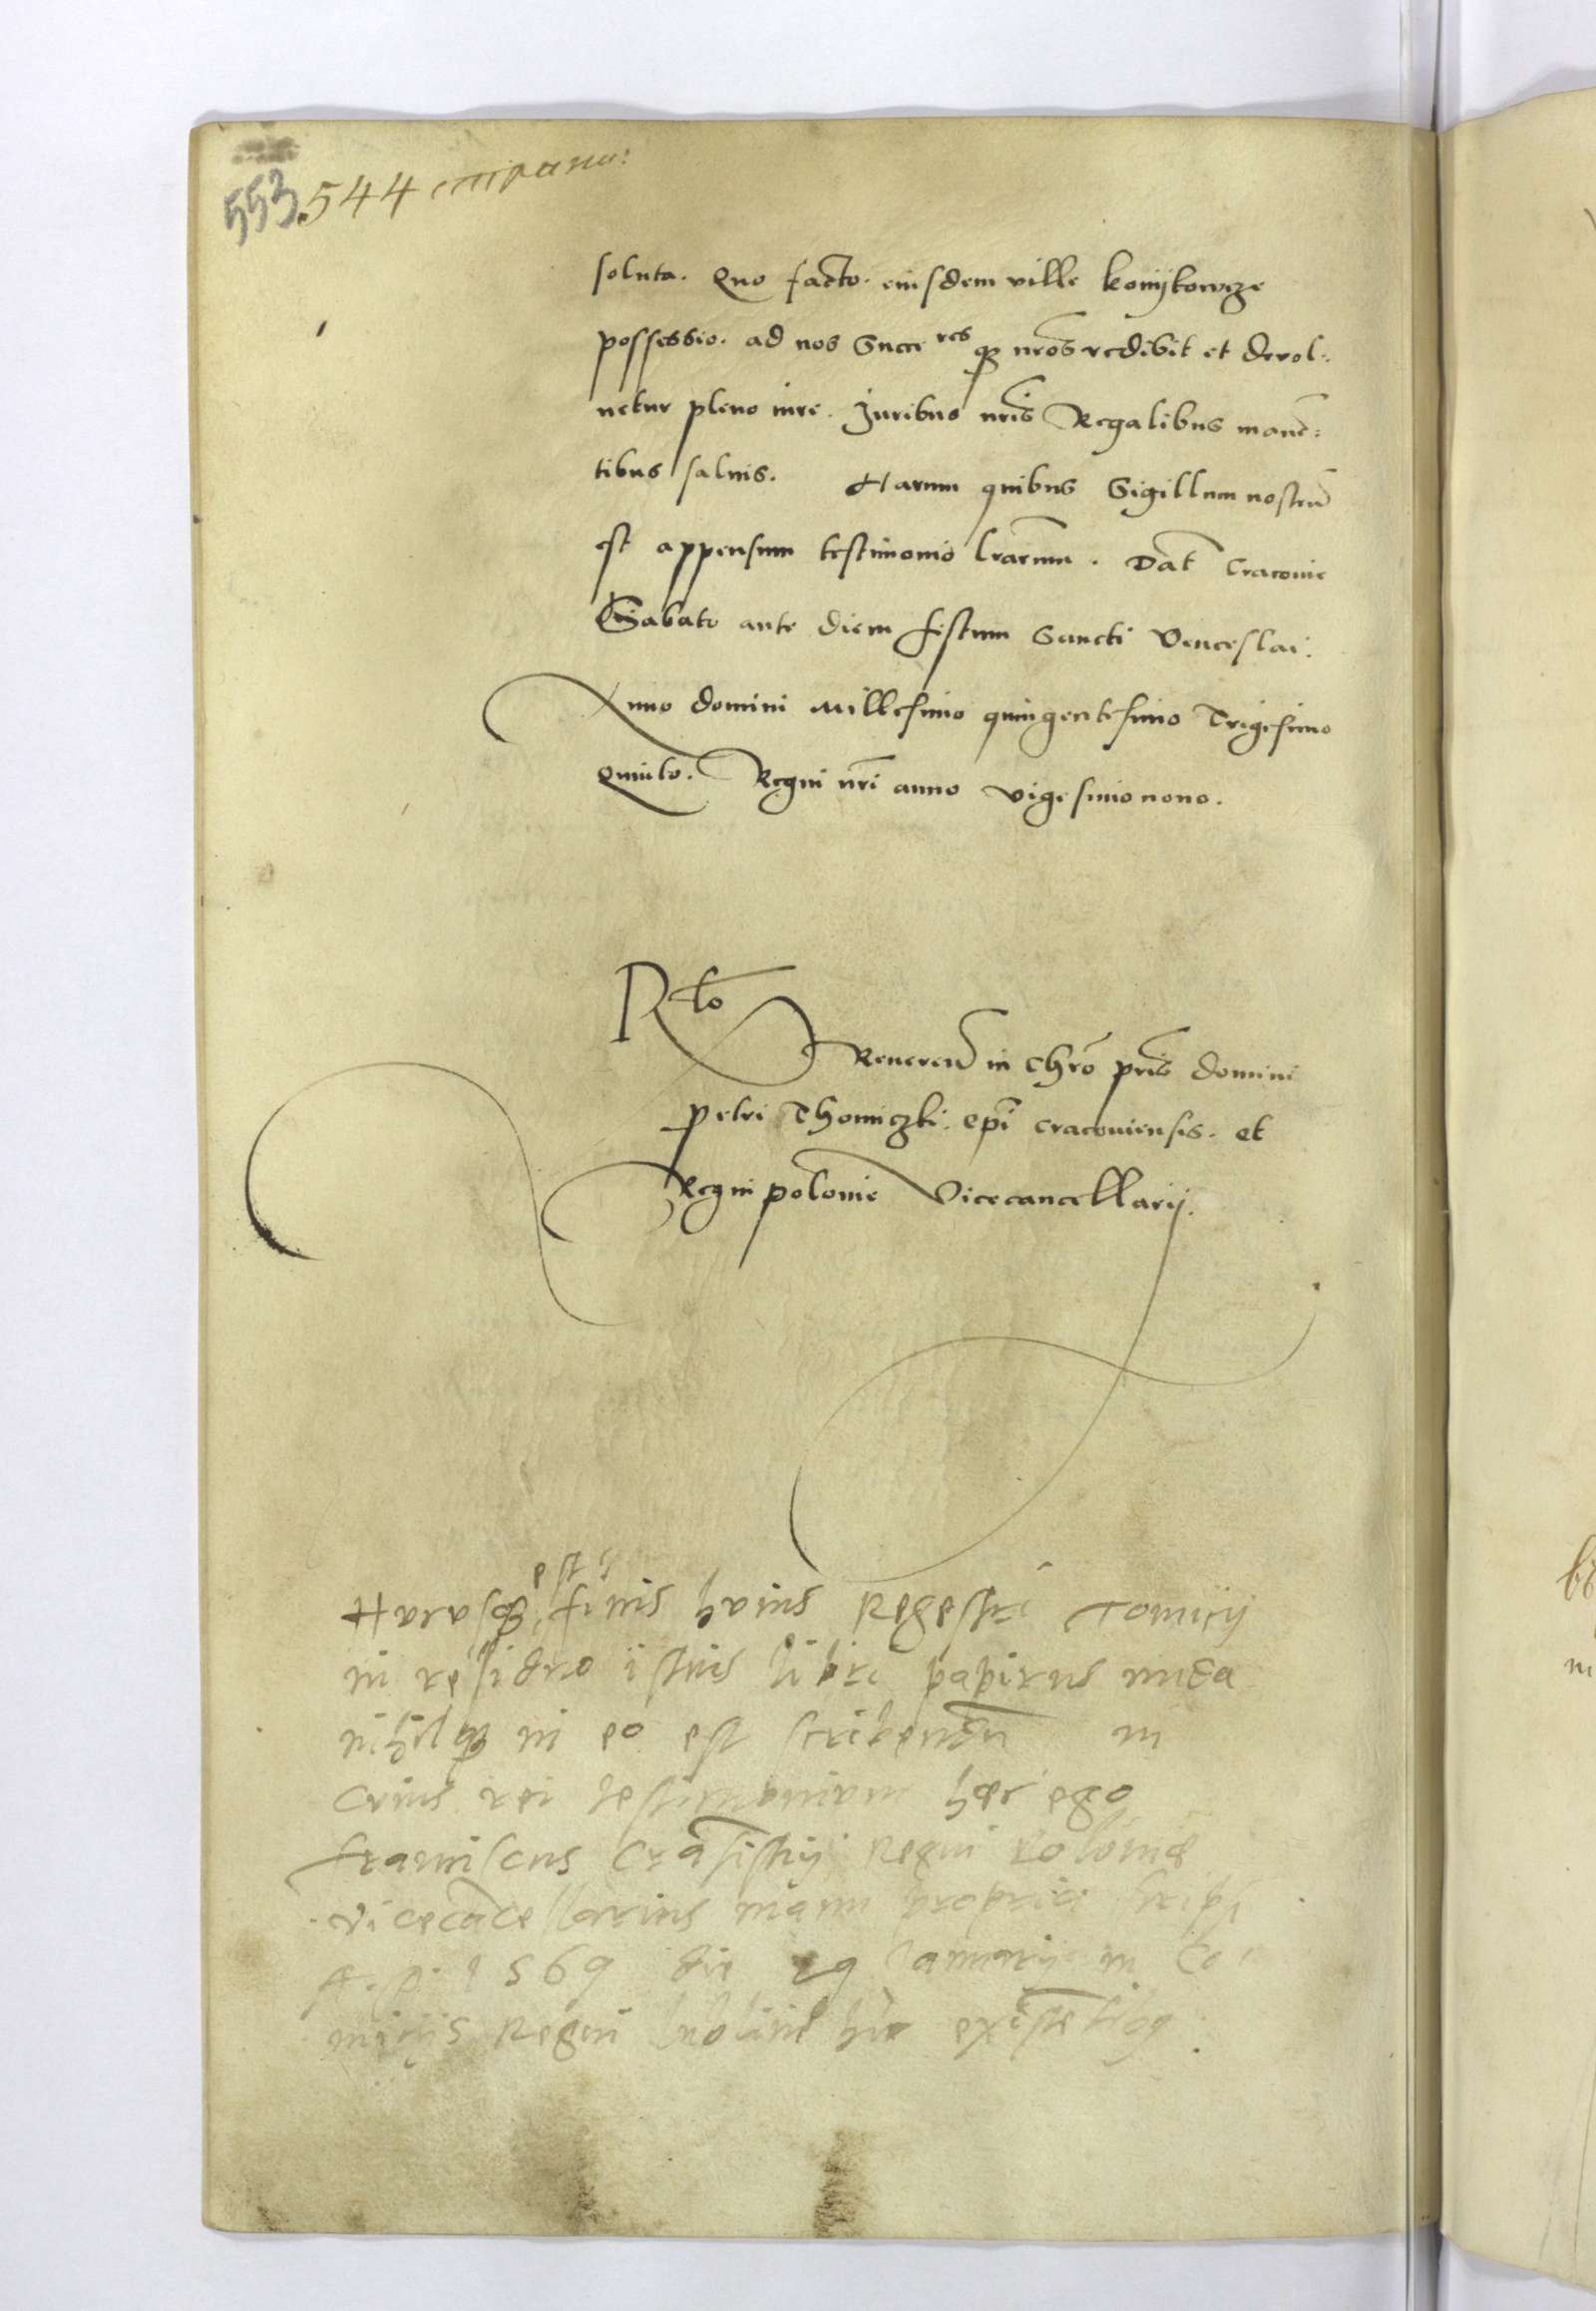 553. 544
soluta. Quo facto. eiusdem ville konijkowcze
possessio. ad nos Succ res q3 nros redibit et devol:
uetur pleno iure. Juribus nris Regalibus mane:
tibus saluis. Harum quibus Sigillum nostru
est appensum testimonio lrarum. Dat Cracouie
Sabato ante diem festum Sancti Venceslai.
Anno domini Millesimo quingentesimo Trigesimo
quinto. Regni nri anno vigesimo nono.
Rlo
Reueren in Chro pris domini
Petri Thomiczki. epi cracouiensis. et
Regni polonie Vicecancellarij.
Hucusq3 est finis huius Regestri Tomicij
in residuo istius libri papirus nuda
nihilq3 in eo est scribendu in
cuius rei testimonium hec ego
franciscus Crasisskij Regni Polonie
vicecacellarius manu propria scripsi
A. D. 1569 die 29 Januarij in Co
mitijs Regni lublini hic existetibq